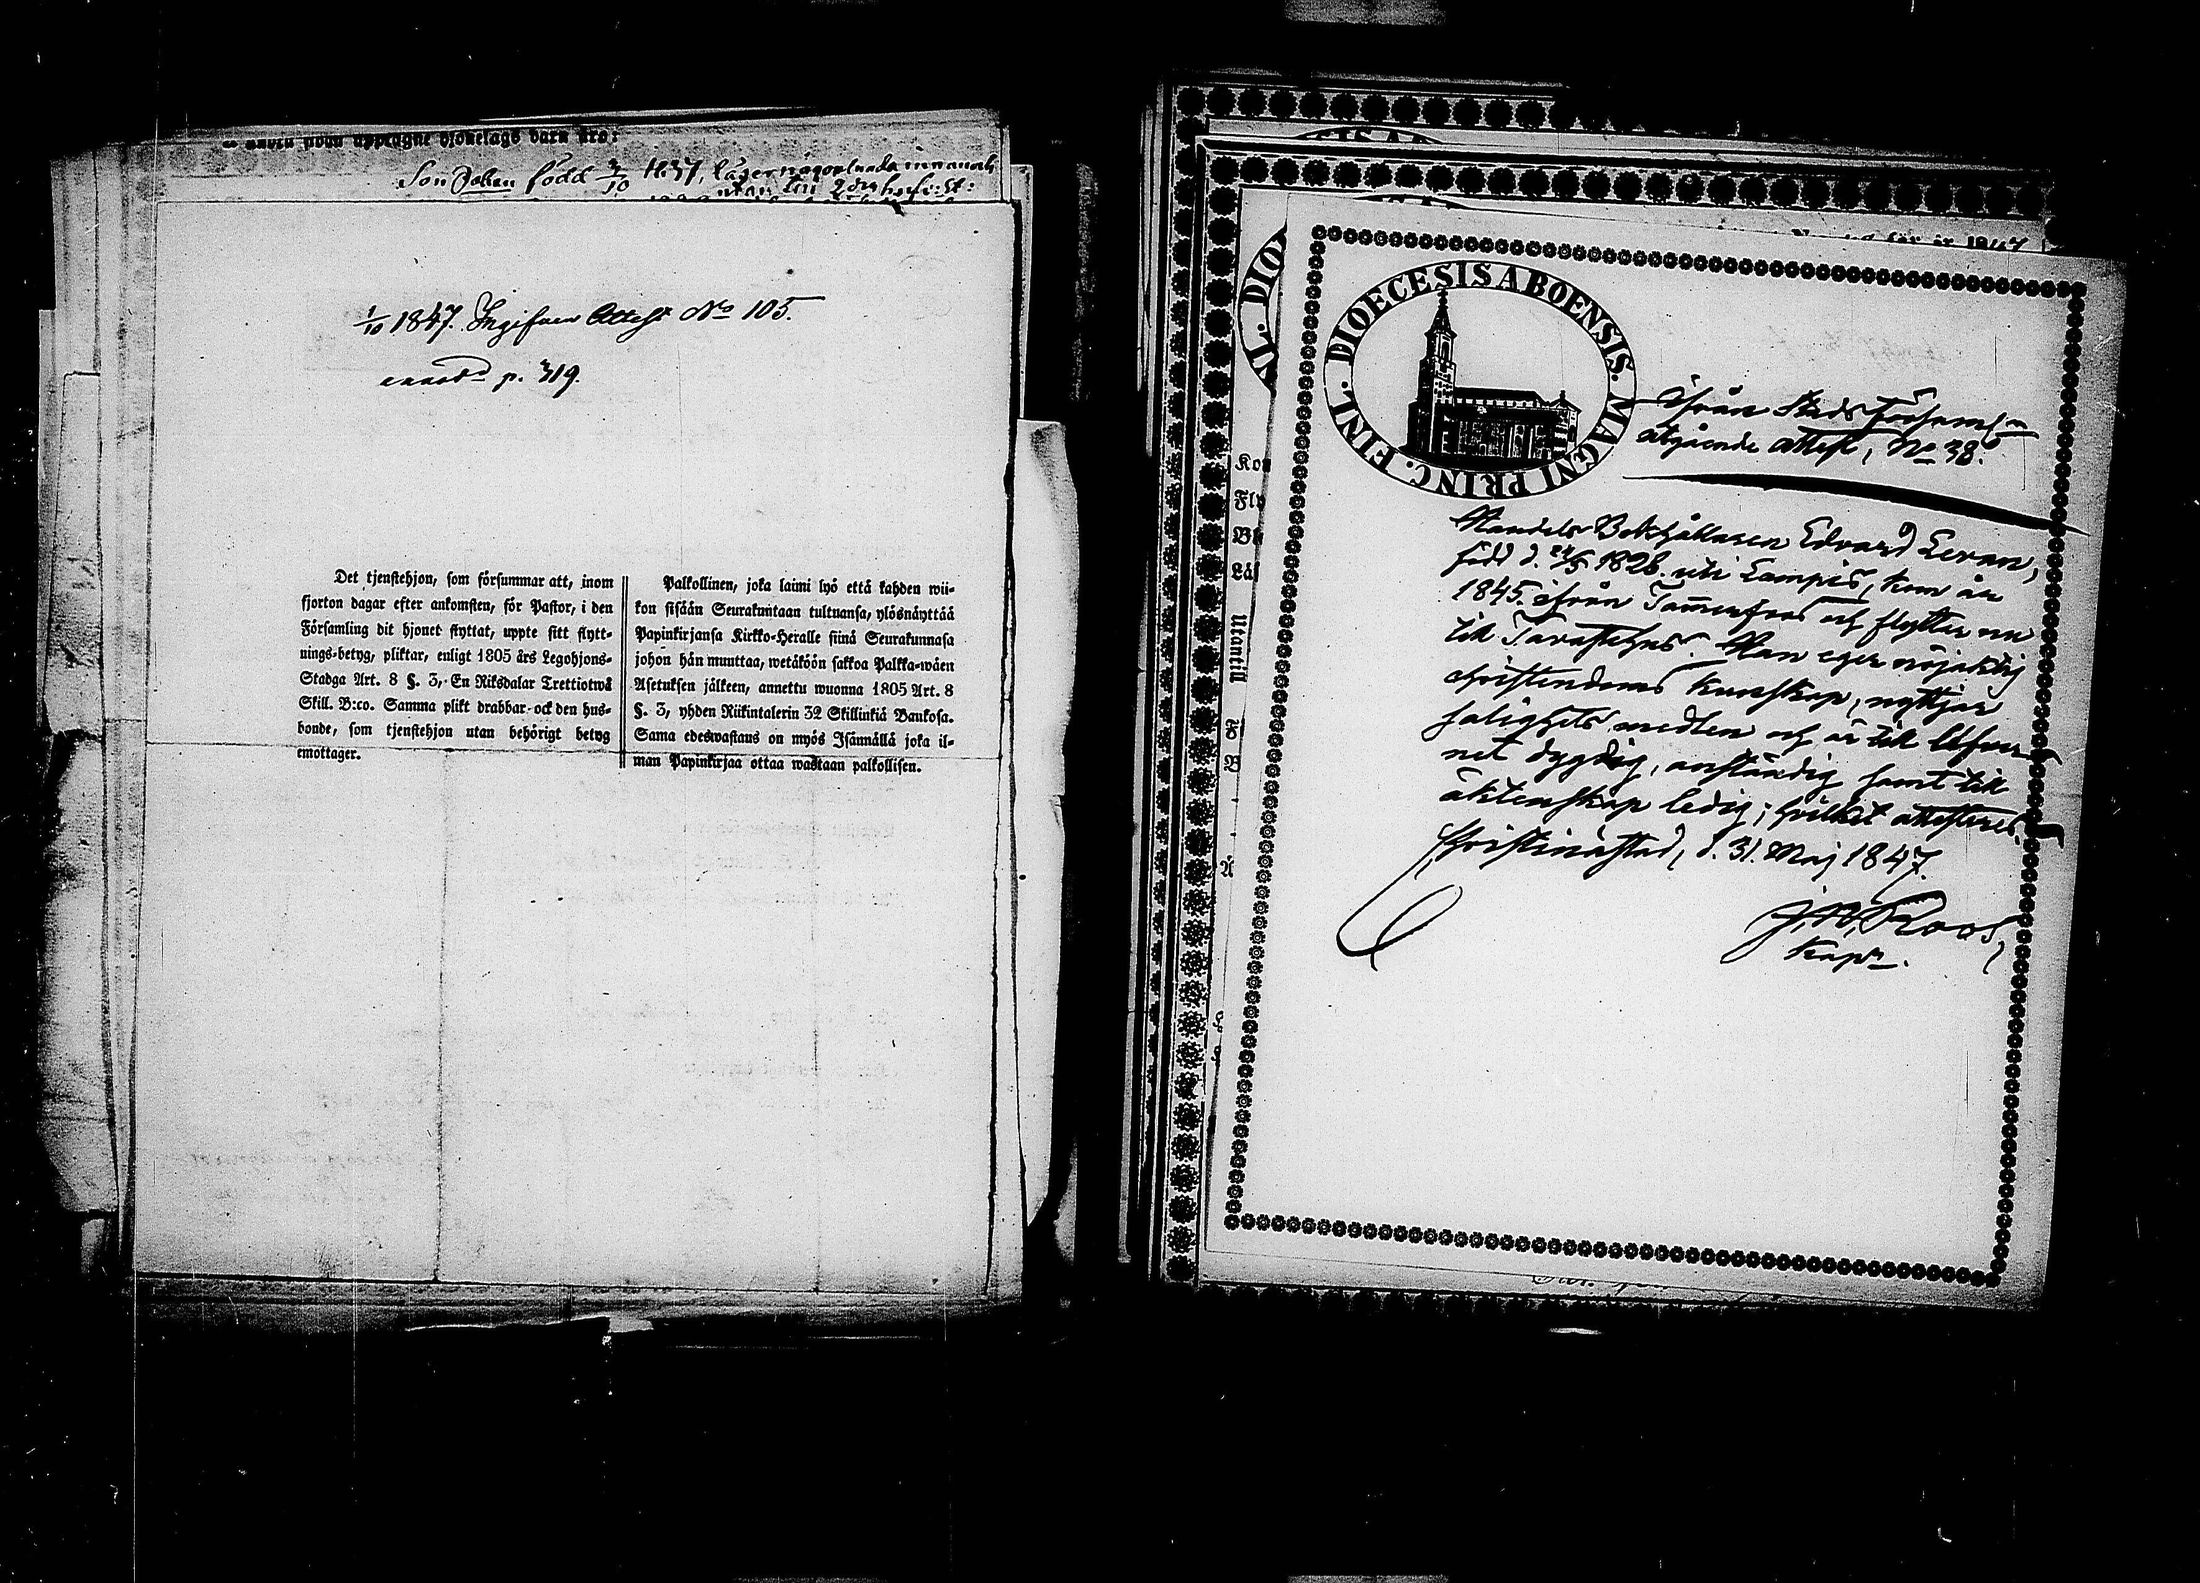 Son Johan född 3/10 1837, läger någorlunda innanoch
utan
1/10 1847. Ingifven Attest No 105.
annot. p. 319.
Det tjenstehjon, som försummar att, inom
fjorton dagar efter ankomsten, för Pastor, i den
Församling dit hjonet flyttat, uppte sitt flytt-
nings-betyg, pliktar, enligt 1805 års Legohjons-
Stadga Art. 8 §. 3, En Riksdalar Trettiotwå
Skill. B:co. Samma plikt drabbar ock den hus-
bonde, som tjenstehjon utan behörigt betyg
emottager.
Palkollinen, joka laimi lyö että kahden wii-
kon sisään Seurakuntaan tultuansa, ylösnäyttää
Papinkirjansa Kirkko-Heralle siinä Seurakunnasa
johon hän muuttaa, wetäköön sakkoa Palkka-wäen
Asetuksen jälkeen, annettu wuonna 1805 Art. 8
§. 3, yhden Riikintalerin 32 Skillinkiä Bankosa.
Sama edeswastaus on myös Isännällä joka il-
man Papinkirjaa ottaa wastaan palkollisen.
för år 1847
AL. DIO
DIOECESIS ABOENSIS. MAGNI PRINC. FINL.
Ifrån Stads Församln
utgående attest, No 38.
Handels Bokhållaren Edvard Levan,
född d. 24/5 1828 uti Lampis, kom år
1845 ifrån Tammerfors och flyttar nu
till Tavastehus. Han eger nöjaktig
christendoms kunskap, nyttjar
salighets medlen och är till lefver-
net dygdig, anständig samt till
äktenskap ledig; hvilket attesteras.
Christinæstad, d. 31. Maj 1847.
J. W. Roos,
Kapn.
Utantill